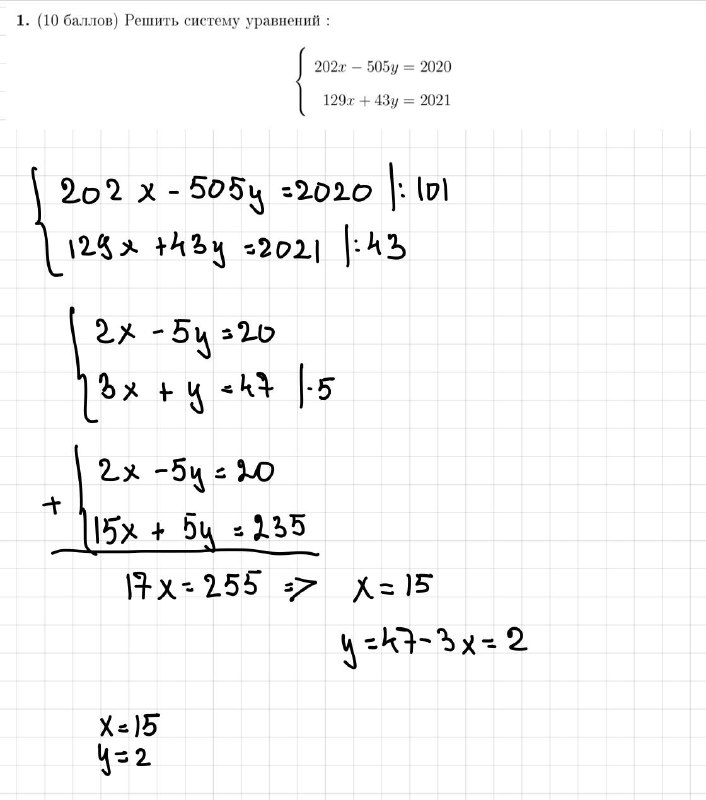 1. (10 баллов) Решить систему уравнений :
202x − 505y = 2020
129x + 43y = 2021
202x - 505y = 2020 |: 101
129x + 43y = 2021 |: 43
2x - 5y = 20
3x + y = 47 |·5
2x - 5y = 20
+
15x + 5y = 235
17x = 255 => x = 15
y = 47 - 3x = 2
x = 15
y = 2